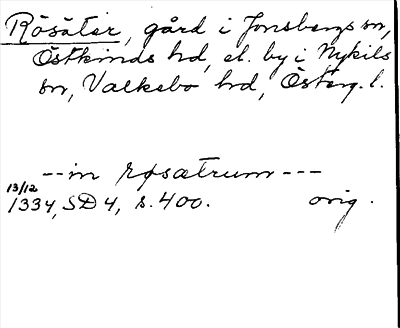 Rösäter, gård i Jonsbergs sn,
Östkinds hd, el. by i Nykils
sn, Valkebo hd, Österg. l.
--in røsætrum---
13/12
1334, SD 4, s. 400. orig.